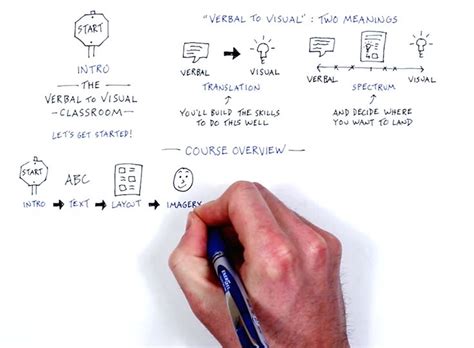 START
INTRO
THE
VERBAL TO VISUAL
CLASSROOM
LET'S GET STARTED!
"VERBAL TO VISUAL" : TWO MEANINGS
VERBAL
VISUAL
TRANSLATION
YOU'LL BUILD THE SKILLS
TO DO THIS WELL
VERBAL
VISUAL
SPECTRUM
AND DECIDE WHERE
YOU WANT TO LAND
COURSE OVERVIEW
START
ABC
INTRO
TEXT
LAYOUT
IMAGERY